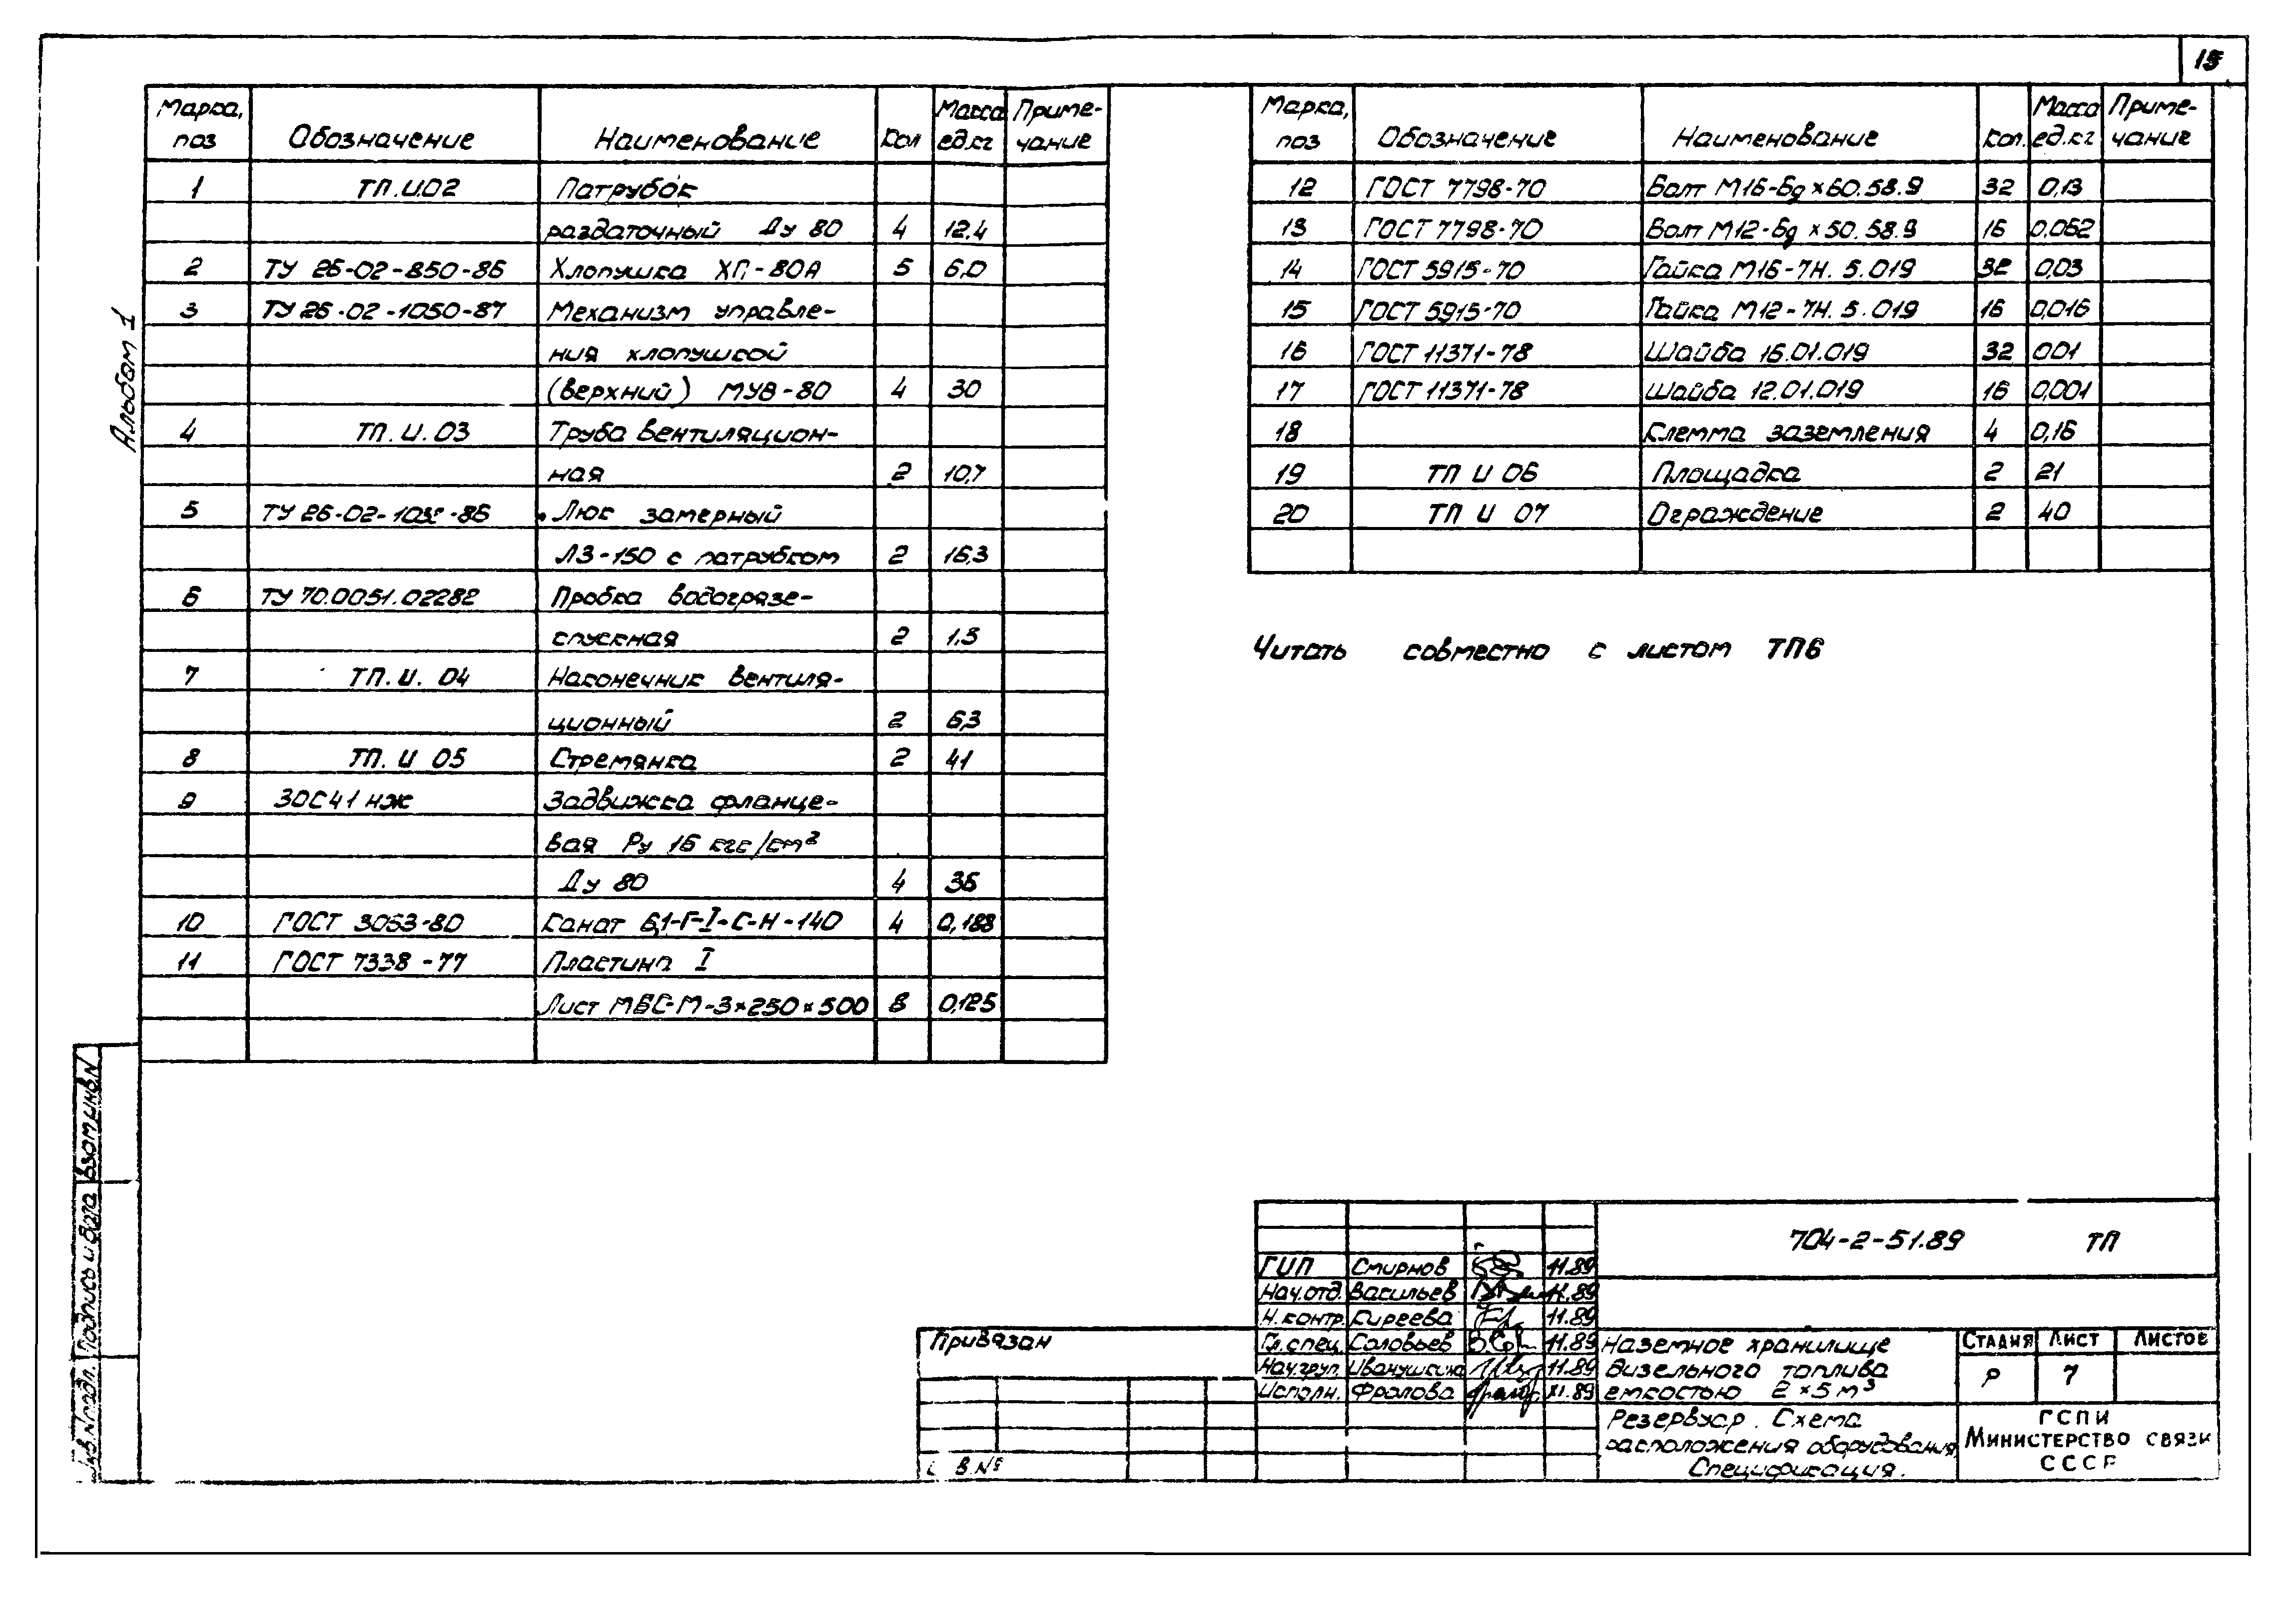 15
Альбом 1
Марка, поз Обозначение Наименование Кол Масса ед.кг Приме-чание
1 ТП.И.02 Патрубок
раздаточный Ду 80 4 12,4
2 ТУ 26-02-850-86 Хлопушка ХП-80А 5 6,0
3 ТУ 26-02-1050-87 Механизм управле-
ния хлопушкой
(верхний) МУВ-80 4 30
4 ТП.И.03 Труба вентиляцион-
ная 2 10,7
5 Люк замерный
ЛЗ-150 с патрубком 2 16,3
6 ТУ 70.0051.02282 Пробка водогрязе-
спускная 2 1.3
7 ТП.И. 04 Наконечник вентиля-
ционный 2 6,3
8 ТП. И 05 Стремянка 2 41
9 30С41 нж Задвижка фланце-
вая Ру 16 кгс/см²
Ду 80 4 36
10 ГОСТ 3063-80 Канат 6,1-Г-I-С-Н-140 4 0,188
11 ГОСТ 7338-77 Пластина I
Лист МБС-М-3×250×500 8 0,125
Марка, поз Обозначение Наименование Кол. Масса ед.кг Приме-чание
12 ГОСТ 7798-70 Болт М16-6g×60.58.9 32 0,13
13 ГОСТ 7798-70 Болт М12-6g×50.58.9 16 0,062
14 ГОСТ 5915-70 Гайка М16-7Н. 5.019 32 0,03
15 ГОСТ 5915-70 Гайка М12-7Н. 5.019 16 0,016
16 ГОСТ 11371-78 Шайба 16.01.019 32 0,01
17 ГОСТ 11371-78 Шайба 12.01.019 16 0,001
18 Клемма заземления 4 0,16
19 ТП И 06 Площадка 2 21
20 ТП И 07 Ограждение 2 40
Читать совместно с листом ТП6
Взам.инв.N
Подпись и дата
Инв.N подл.
704-2-51.89 ТП
ГИП Смирнов 11.89
Нач.отд. Васильев 11.89
Н.контр. Киреева 11.89
Гл.спец. Соловьев 11.89
Нач.груп. Иванушкина 11.89
Исполн. Фролова XI.89
Привязан
В.№
Наземное хранилище
дизельного топлива
емкостью 2×5м³
Стадия Лист Листов
Р 7
Резервуар. Схема
расположения оборудования
Спецификация.
ГСПИ
Министерство связи
СССР